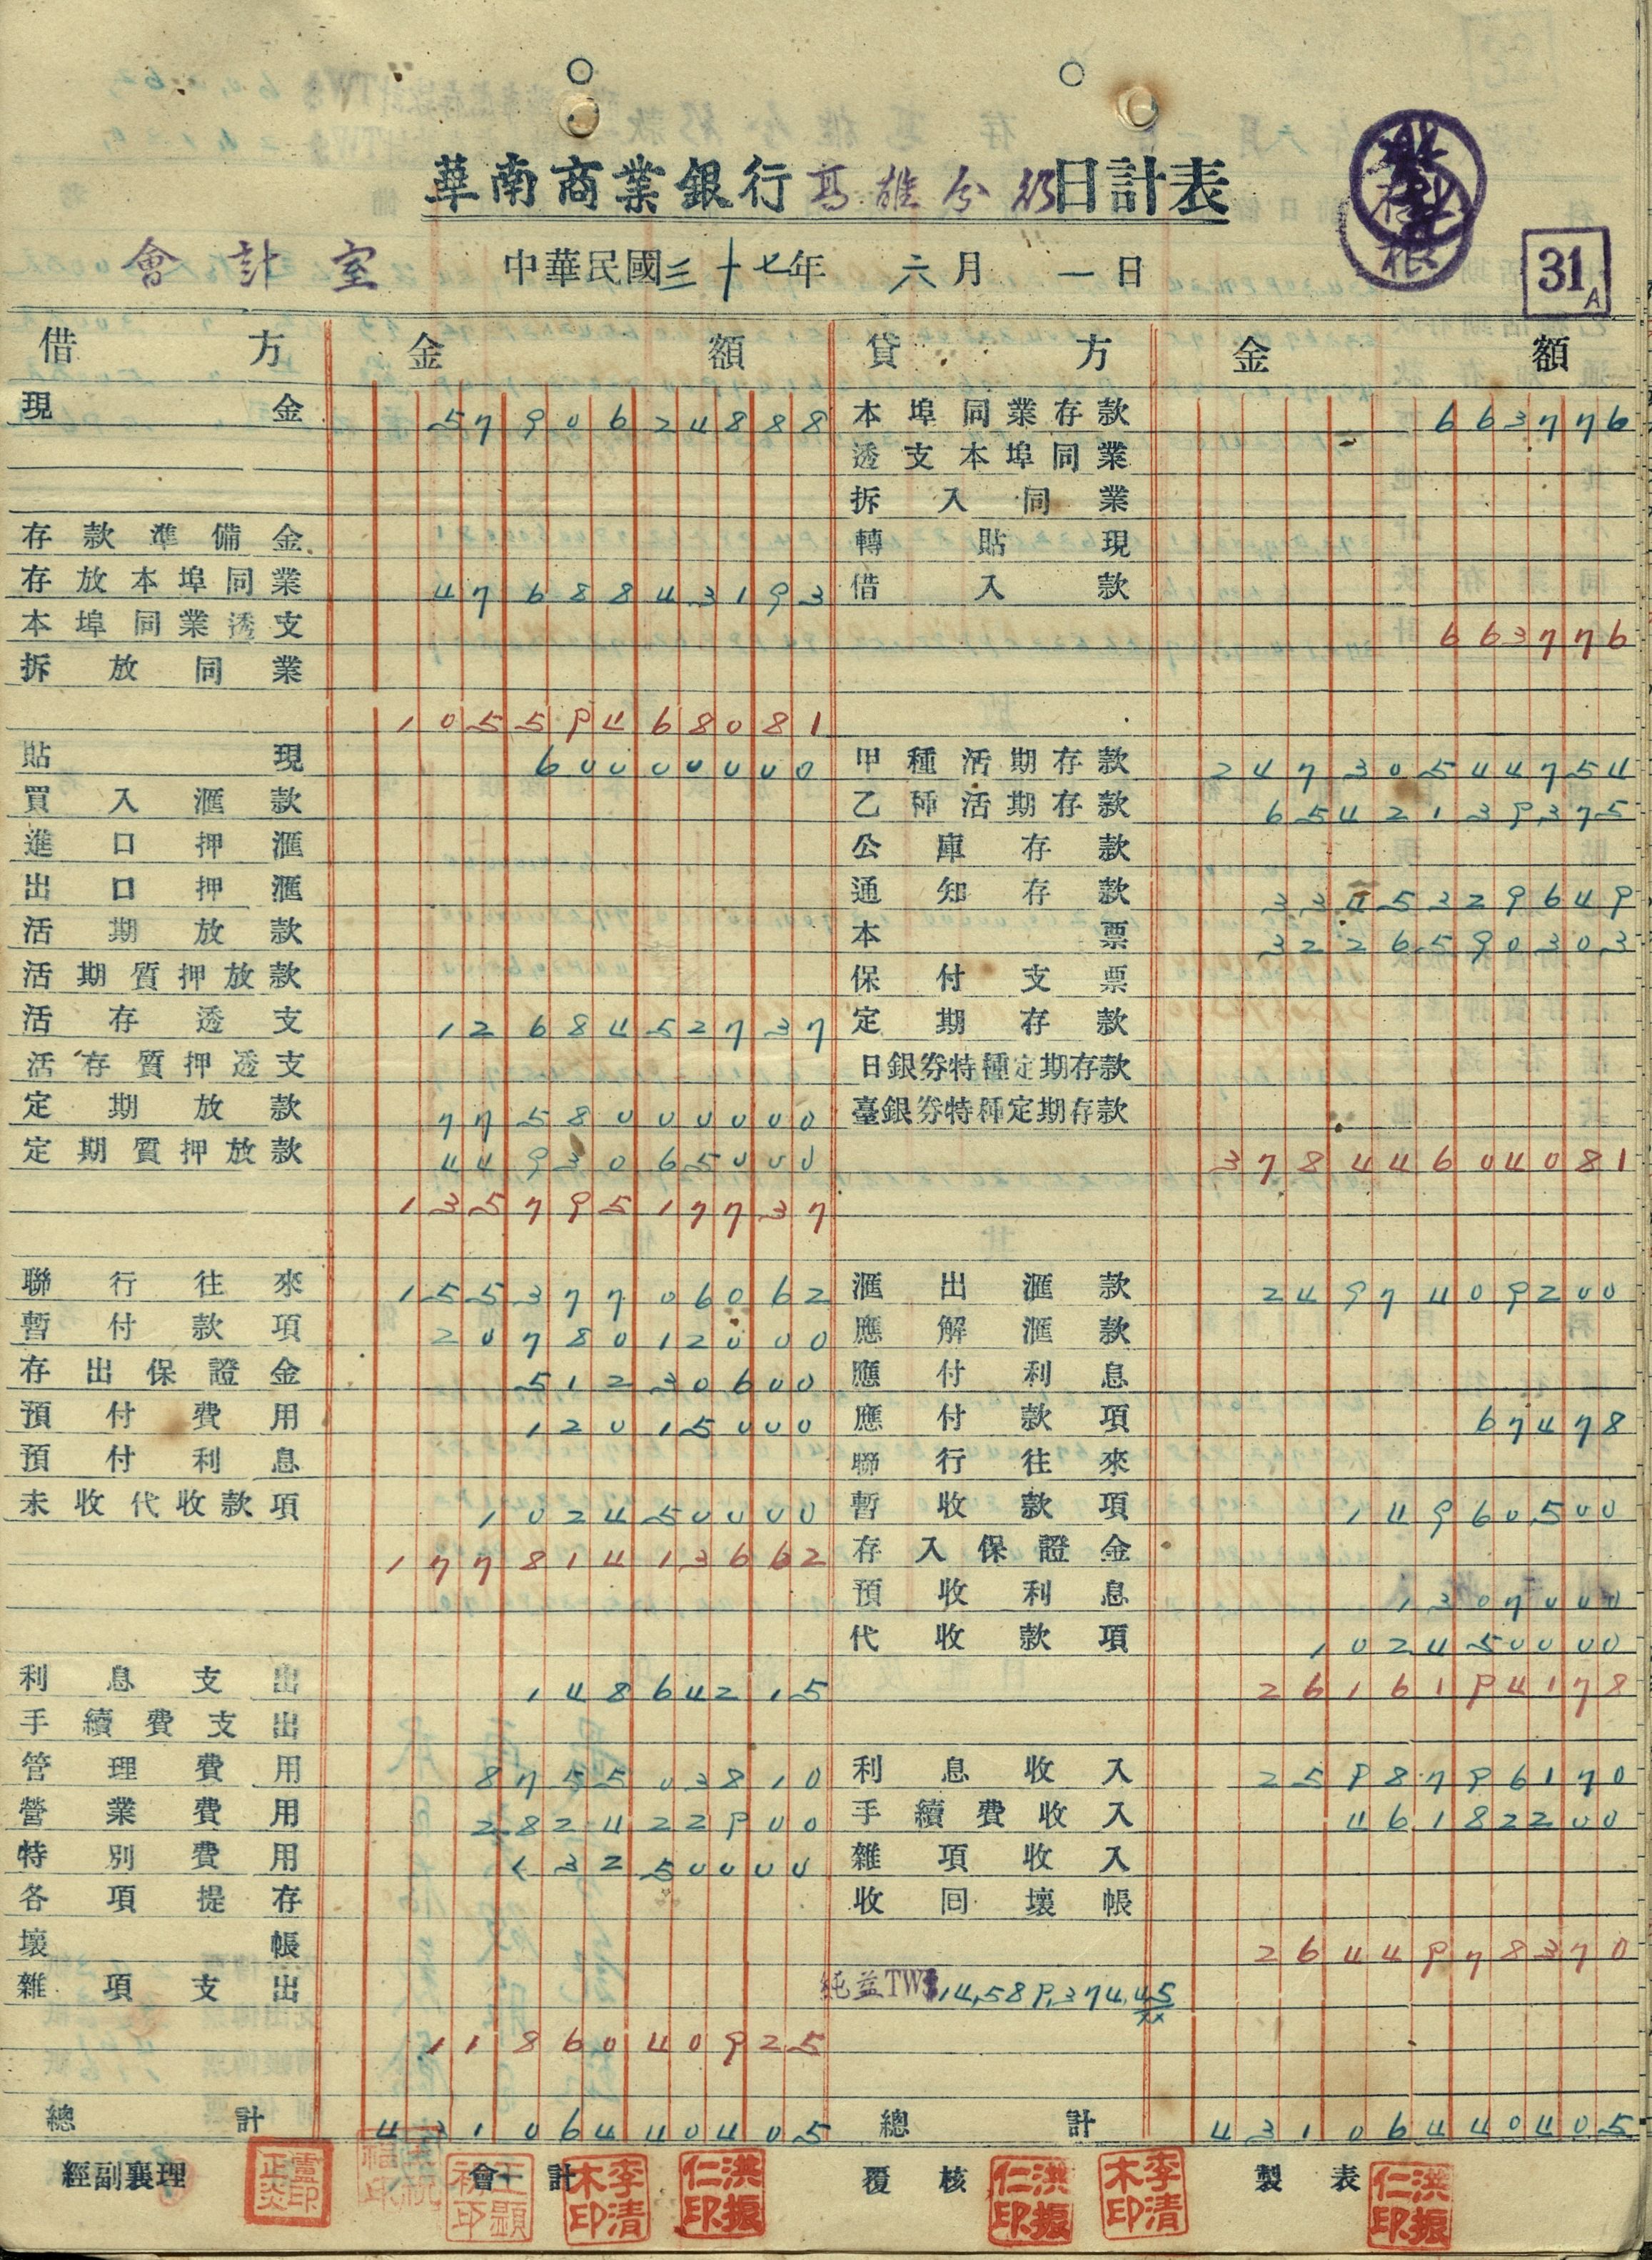 華南商業銀行高雄分行日計表
會計室
中華民國三十七年六月一日
31A
借方 金額 貸方 金額
現金 5790624888 本埠同業存款 663776
透支本埠同業
拆入同業
存款準備金 轉貼現
存放本埠同業 4768843193 借入款
本埠同業透支 663776
拆放同業
10559468081
貼現 60000000 甲種活期存款 24730544754
買入滙款 乙種活期存款 6542139375
進口押滙 公庫存款
出口押滙 通知存款 3345329649
活期放款 本票 3226590303
活期質押放款 保付支票
活存透支 1268452737 定期存款
活存質押透支 日銀券特種定期存款
定期放款 7758000000 臺銀券特種定期存款
定期質押放款 4493065000 37844604081
13579517737
聯行往來 15537706062 滙出滙款 2497409200
暫付款項 2078012000 應解滙款
存出保證金 51230600 應付利息
預付費用 12015000 應付款項 67478
預付利息 聯行往來
未收代收款項 102450000 暫收款項 14960500
17781413662 存入保證金
預收利息 1307000
代收款項 102450000
利息支出 14864215 2616194178
手續費支出
管理費用 875503810 利息收入 2598796170
營業費用 282422900 手續費收入 46182200
特別費用 13250000 雜項收入
各項提存 收回壞帳
壞帳 2644978370
雜項支出 純益TW$14,589,374.45
1186040925
總計 43106440405 總計 43106440405
經副襄理 會計 覆核 製表
李清木印 洪振仁印 洪振仁印 李清木印 洪振仁印